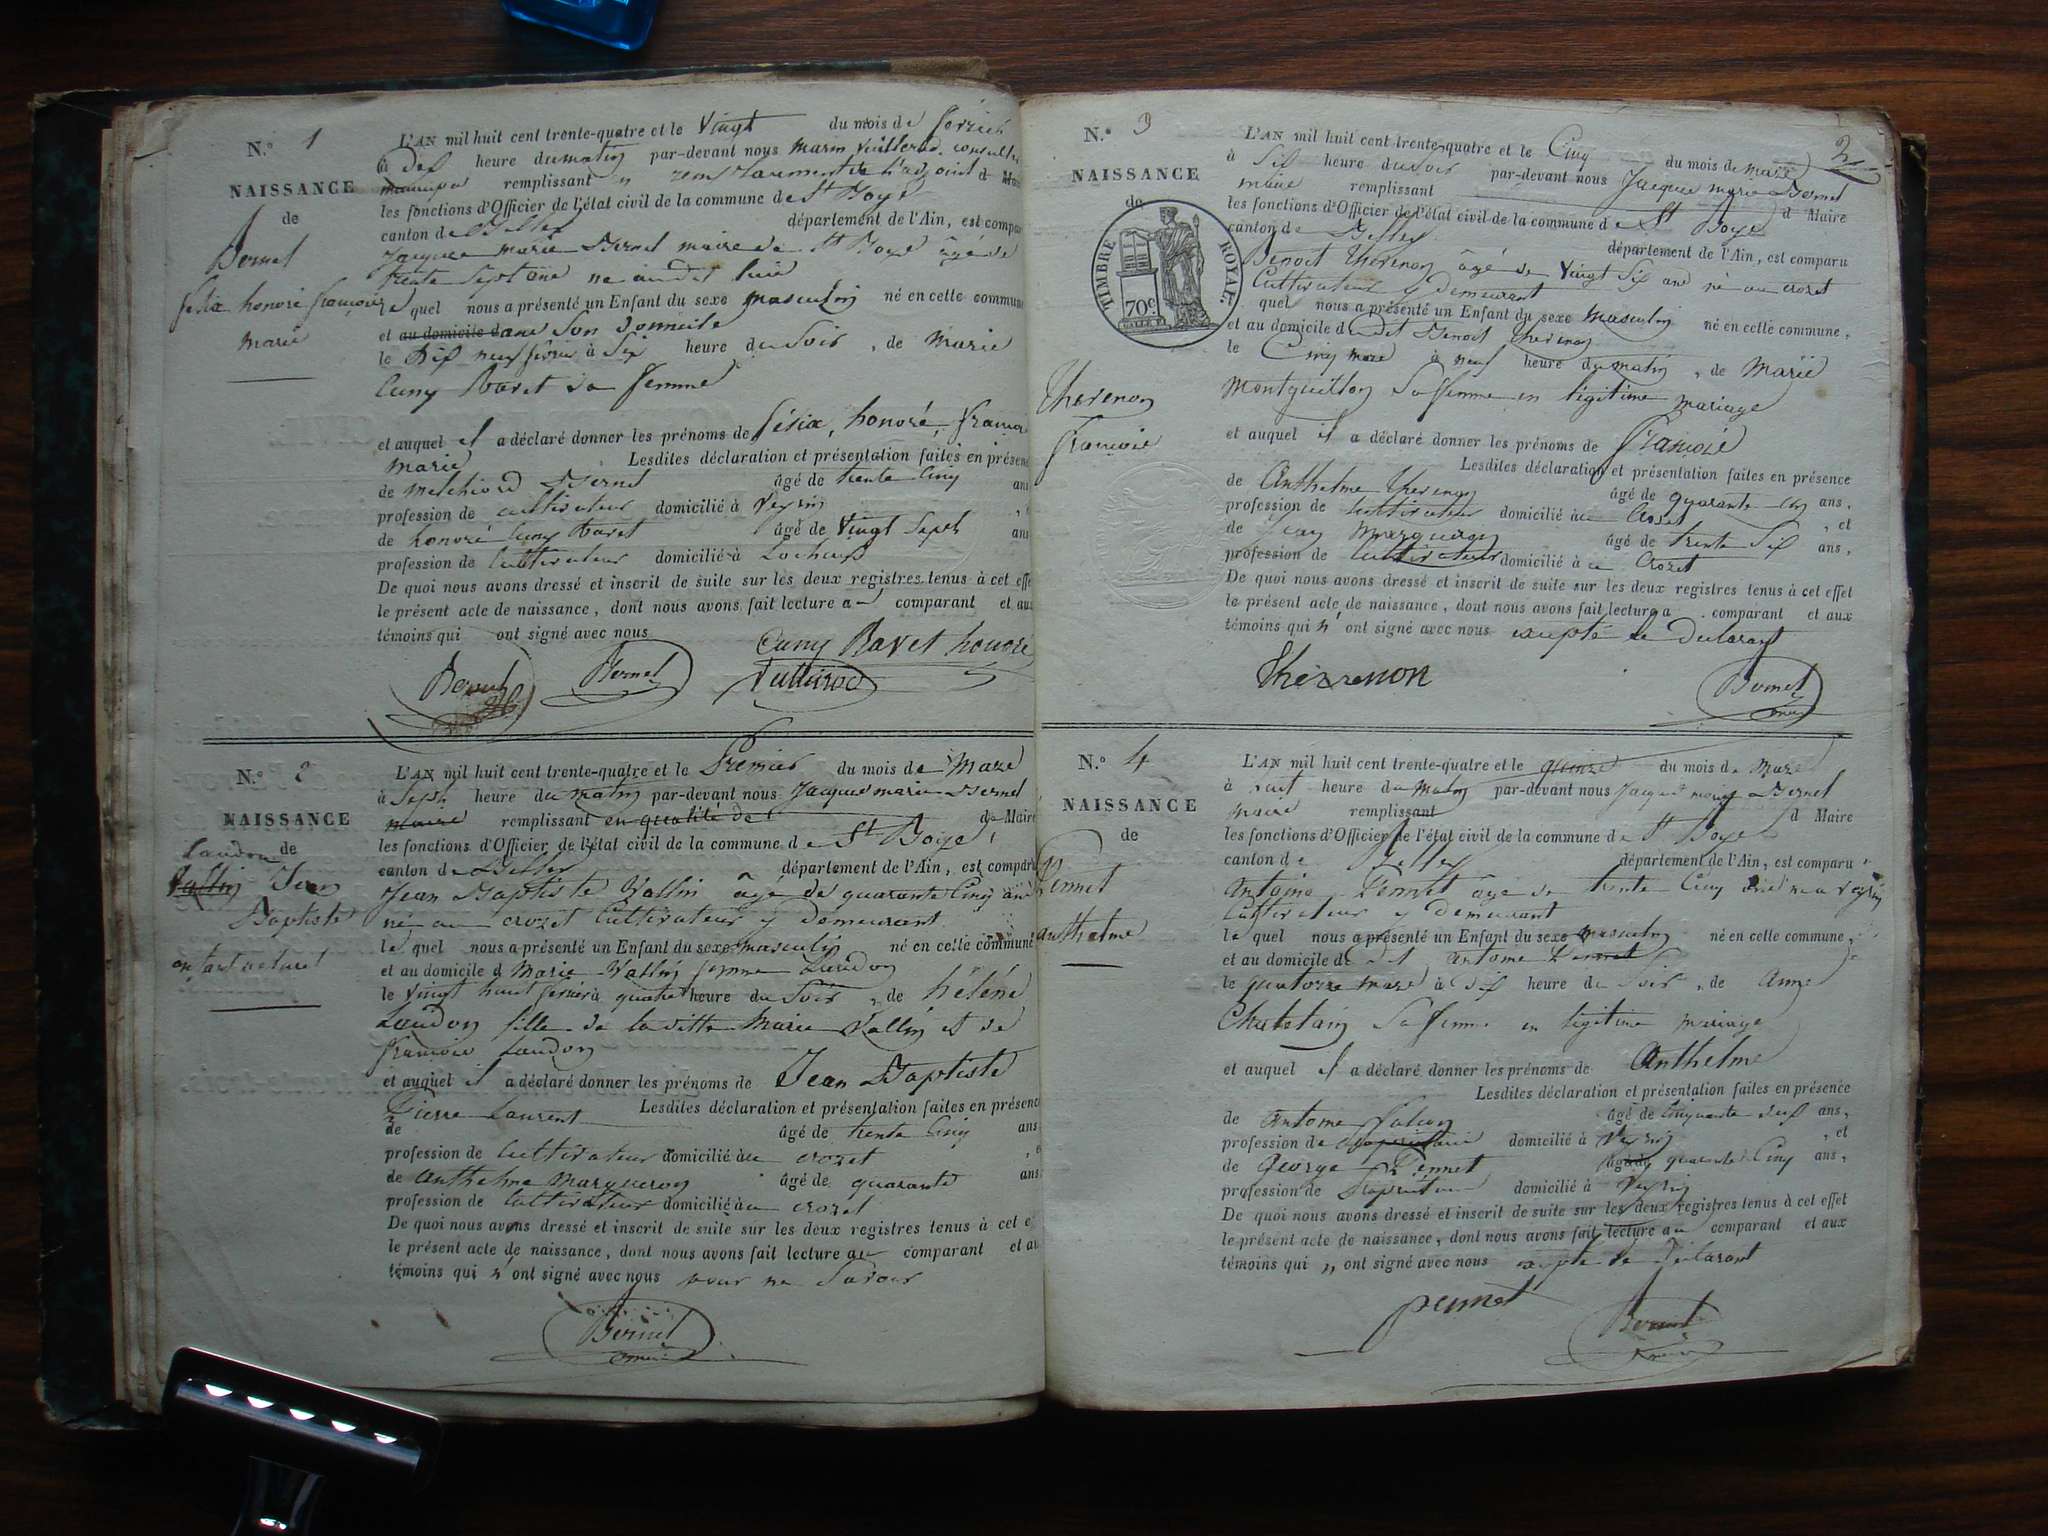 N.º 1
NAISSANCE
de
Bernet
félix honoré françois
marie
L'AN mil huit cent trente-quatre et le Vingt du mois de février
à dix heure du matin par-devant nous marin Vuillerod consulté
municipal remplissant l'adjoint d Maire
les fonctions d'Officier de l'état civil de la commune de St Boys
canton de Belley département de l'Ain, est comparu
Jacques marie Bernet maire de St Boys âgé de
trente Sept ans né audit lieu
lequel nous a présenté un Enfant du sexe masculin né en cette commune
et au domicile dans Son domicile
le Dix neuf février à Six heure du Soir, de Marie
Cuny Ravet Sa femme
et auquel il a déclaré donner les prénoms de félix, honoré, françois
marie Lesdites déclaration et présentation faites en présence
de melchiord Bernet âgé de trente Cinq ans
profession de cultivateur domicilié à Veyrin
de honoré Cuny Ravet âgé de Vingt Sept ans
profession de Cultivateur domicilié à Lochieu
De quoi nous avons dressé et inscrit de suite sur les deux registres tenus à cet effet
le présent acte de naissance, dont nous avons fait lecture au comparant et aux
témoins qui ont signé avec nous
Cuny Ravet honoré
Bernet Bernet Vuillerod
N.º 2
NAISSANCE
de
Laudon
Vallin Jean
Baptiste
enfant naturel
L'AN mil huit cent trente-quatre et le Premier du mois de Mars
à Sept heure du matin par-devant nous Jacques marie Bernet
maire remplissant en qualité de d Maire
les fonctions d'Officier de l'état civil de la commune de St Boys
canton de Belley département de l'Ain, est comparu
Jean Baptiste Vallin âgé de quarante Cinq ans
né au crozet Cultivateur y demeurant
lequel nous a présenté un Enfant du sexe masculin né en cette commune
et au domicile d Marie Vallin femme Laudon
le Vingt huit février à quatre heure du Soir, de hélène
Laudon fille de la ditte Marie Vallin et de
françois Laudon
et auquel il a déclaré donner les prénoms de Jean Baptiste
Lesdites déclaration et présentation faites en présence
de Pierre Laurent âgé de trente Cinq ans
profession de Cultivateur domicilié au crozet
de anthelme Marqueron âgé de quarante ans
profession de Cultivateur domicilié au crozet
De quoi nous avons dressé et inscrit de suite sur les deux registres tenus à cet effet
le présent acte de naissance, dont nous avons fait lecture au comparant et aux
témoins qui n'ont signé avec nous pour ne Savoir
Bernet
maire
2
N.º 3
NAISSANCE
de
TIMBRE ROYAL
70c.
Thevenon
françois
L'AN mil huit cent trente-quatre et le Cinq du mois de mars
à Six heure du Soir par-devant nous Jacques marie Bernet
maire remplissant d Maire
les fonctions d'Officier de l'état civil de la commune de St Boys
canton de Belley département de l'Ain, est comparu
Benoit Thevenon âgé de Vingt Six ans né au crozet
Cultivateur y demeurant
quel nous a présenté un Enfant du sexe masculin né en cette commune,
et au domicile d dit Benoit thevenon
le Cinq mars à neuf heure du matin, de Marie
Montquillon Sa femme en légitime mariage
et auquel il a déclaré donner les prénoms de François
Lesdites déclaration et présentation faites en présence
de Anthelme thevenon âgé de quarante ans,
profession de Cultivateur domicilié au Crozet, et
de Jean Marqueron âgé de trente Six ans,
profession de Cultivateur domicilié au Crozet
De quoi nous avons dressé et inscrit de suite sur les deux registres tenus à cet effet
le présent acte de naissance, dont nous avons fait lecture a comparant et aux
témoins qui n'ont signé avec nous excepté le déclarant
Thevenon
Bernet
maire
N.º 4
NAISSANCE
de
Pennet
anthelme
L'AN mil huit cent trente-quatre et le quinze du mois de mars
à huit heure du Matin par-devant nous Jacques marie Bernet
maire remplissant d Maire
les fonctions d'Officier de l'état civil de la commune de St Boys
canton de Belley département de l'Ain, est comparu
antoine Pennet âgé de trente Cinq ans né a Veyrin
Cultivateur y demeurant
lequel nous a présenté un Enfant du sexe masculin né en cette commune,
et au domicile d dit antoine Pennet
le quatorze mars à dix heure du Soir, de Anne
Chatelain Sa femme en légitime mariage
et auquel il a déclaré donner les prénoms de Anthelme
Lesdites déclaration et présentation faites en présence
de antoine âgé de Cinquante ans,
profession de domicilié à Veyrin, et
de george Pennet âgé de quarante Cinq ans,
profession de domicilié à Veyrin
De quoi nous avons dressé et inscrit de suite sur les deux registres tenus à cet effet
le présent acte de naissance, dont nous avons fait lecture au comparant et aux
témoins qui n ont signé avec nous excepté le Déclarant
pennet
Bernet
maire